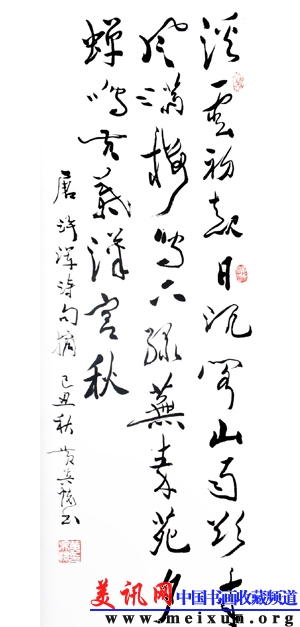 溪雲初起日沉阁山雨欲来
风满楼鸟下绿蕪秦苑夕
蝉鸣黄葉漢宫秋
唐许浑诗句摘 己丑秋 书
美讯网 中国书画收藏频道
www.meixun.org